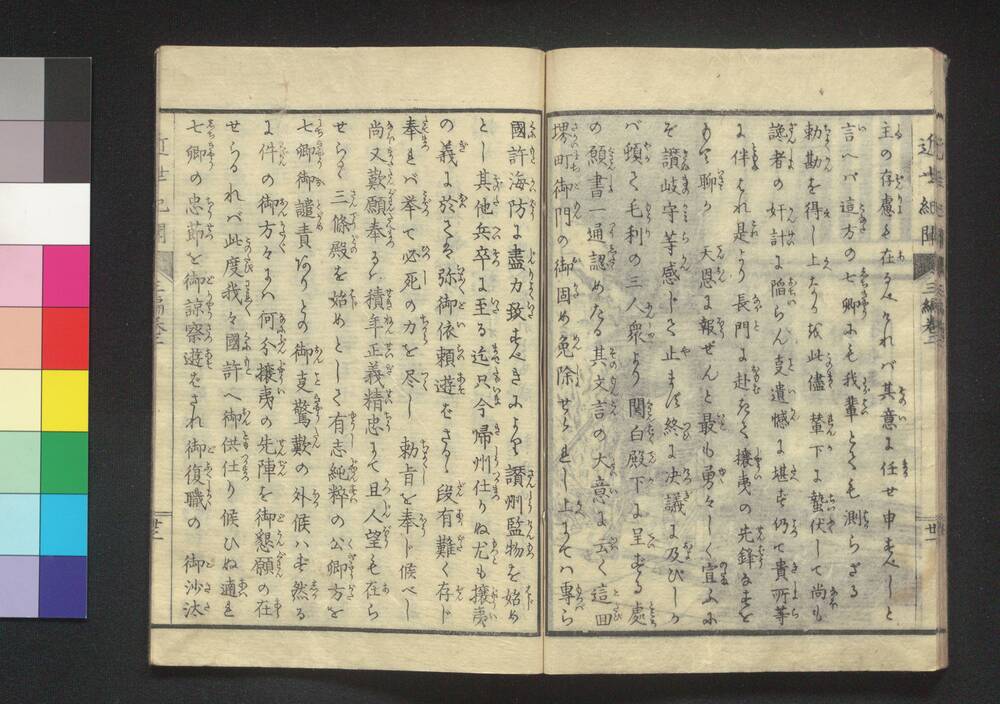 主の存慮も在るべければ其意に任せ申すべしと
言へバ這方の七卿にも我輩とても測らざる
勅勘を得し上ハ此儘輦下に蟄伏して尚も
讒者の奸計に陥らん支遺憾に堪ず仍て貴所等
に伴はれ是より長門に赴きて攘夷の先鋒なすを
もて聊か 天恩に報ぜんと最も勇々しく宣ふに
ぞ讃岐守等感じて止まず終に決議に及びしか
バ頓て毛利の三人衆より関白殿下に呈する處
の願書一通認めたる其文言の大意に云く這回
堺町御門の御固め免除せられし上まてハ専ら
國許海防に盡力致すべきにより讃州監物を始め
とし其他兵卒に至る迄只今帰州仕りぬ尤も攘夷
の義に於ても弥御依頼遊ばさるゝ段有難く存じ
奉れバ挙て必死の力を尽し 勅旨を奉じ候べし
尚又歎願奉るハ積年正義精忠にて且人望も在ら
せらる三條殿を始めとして有志純粹の公卿方を
七卿御譴責ありとの御支驚歎の外候ハず然る
に件の御方々にハ何分攘夷の先陣を御懇願の在
せらるれバ此度我々國許へ御供仕り候ひぬ適も
七卿の忠節を御諒察遊ばされ御復職の 御沙汰
近世紀聞 三編巻二 廿一
近世紀聞 三編巻二 廿二